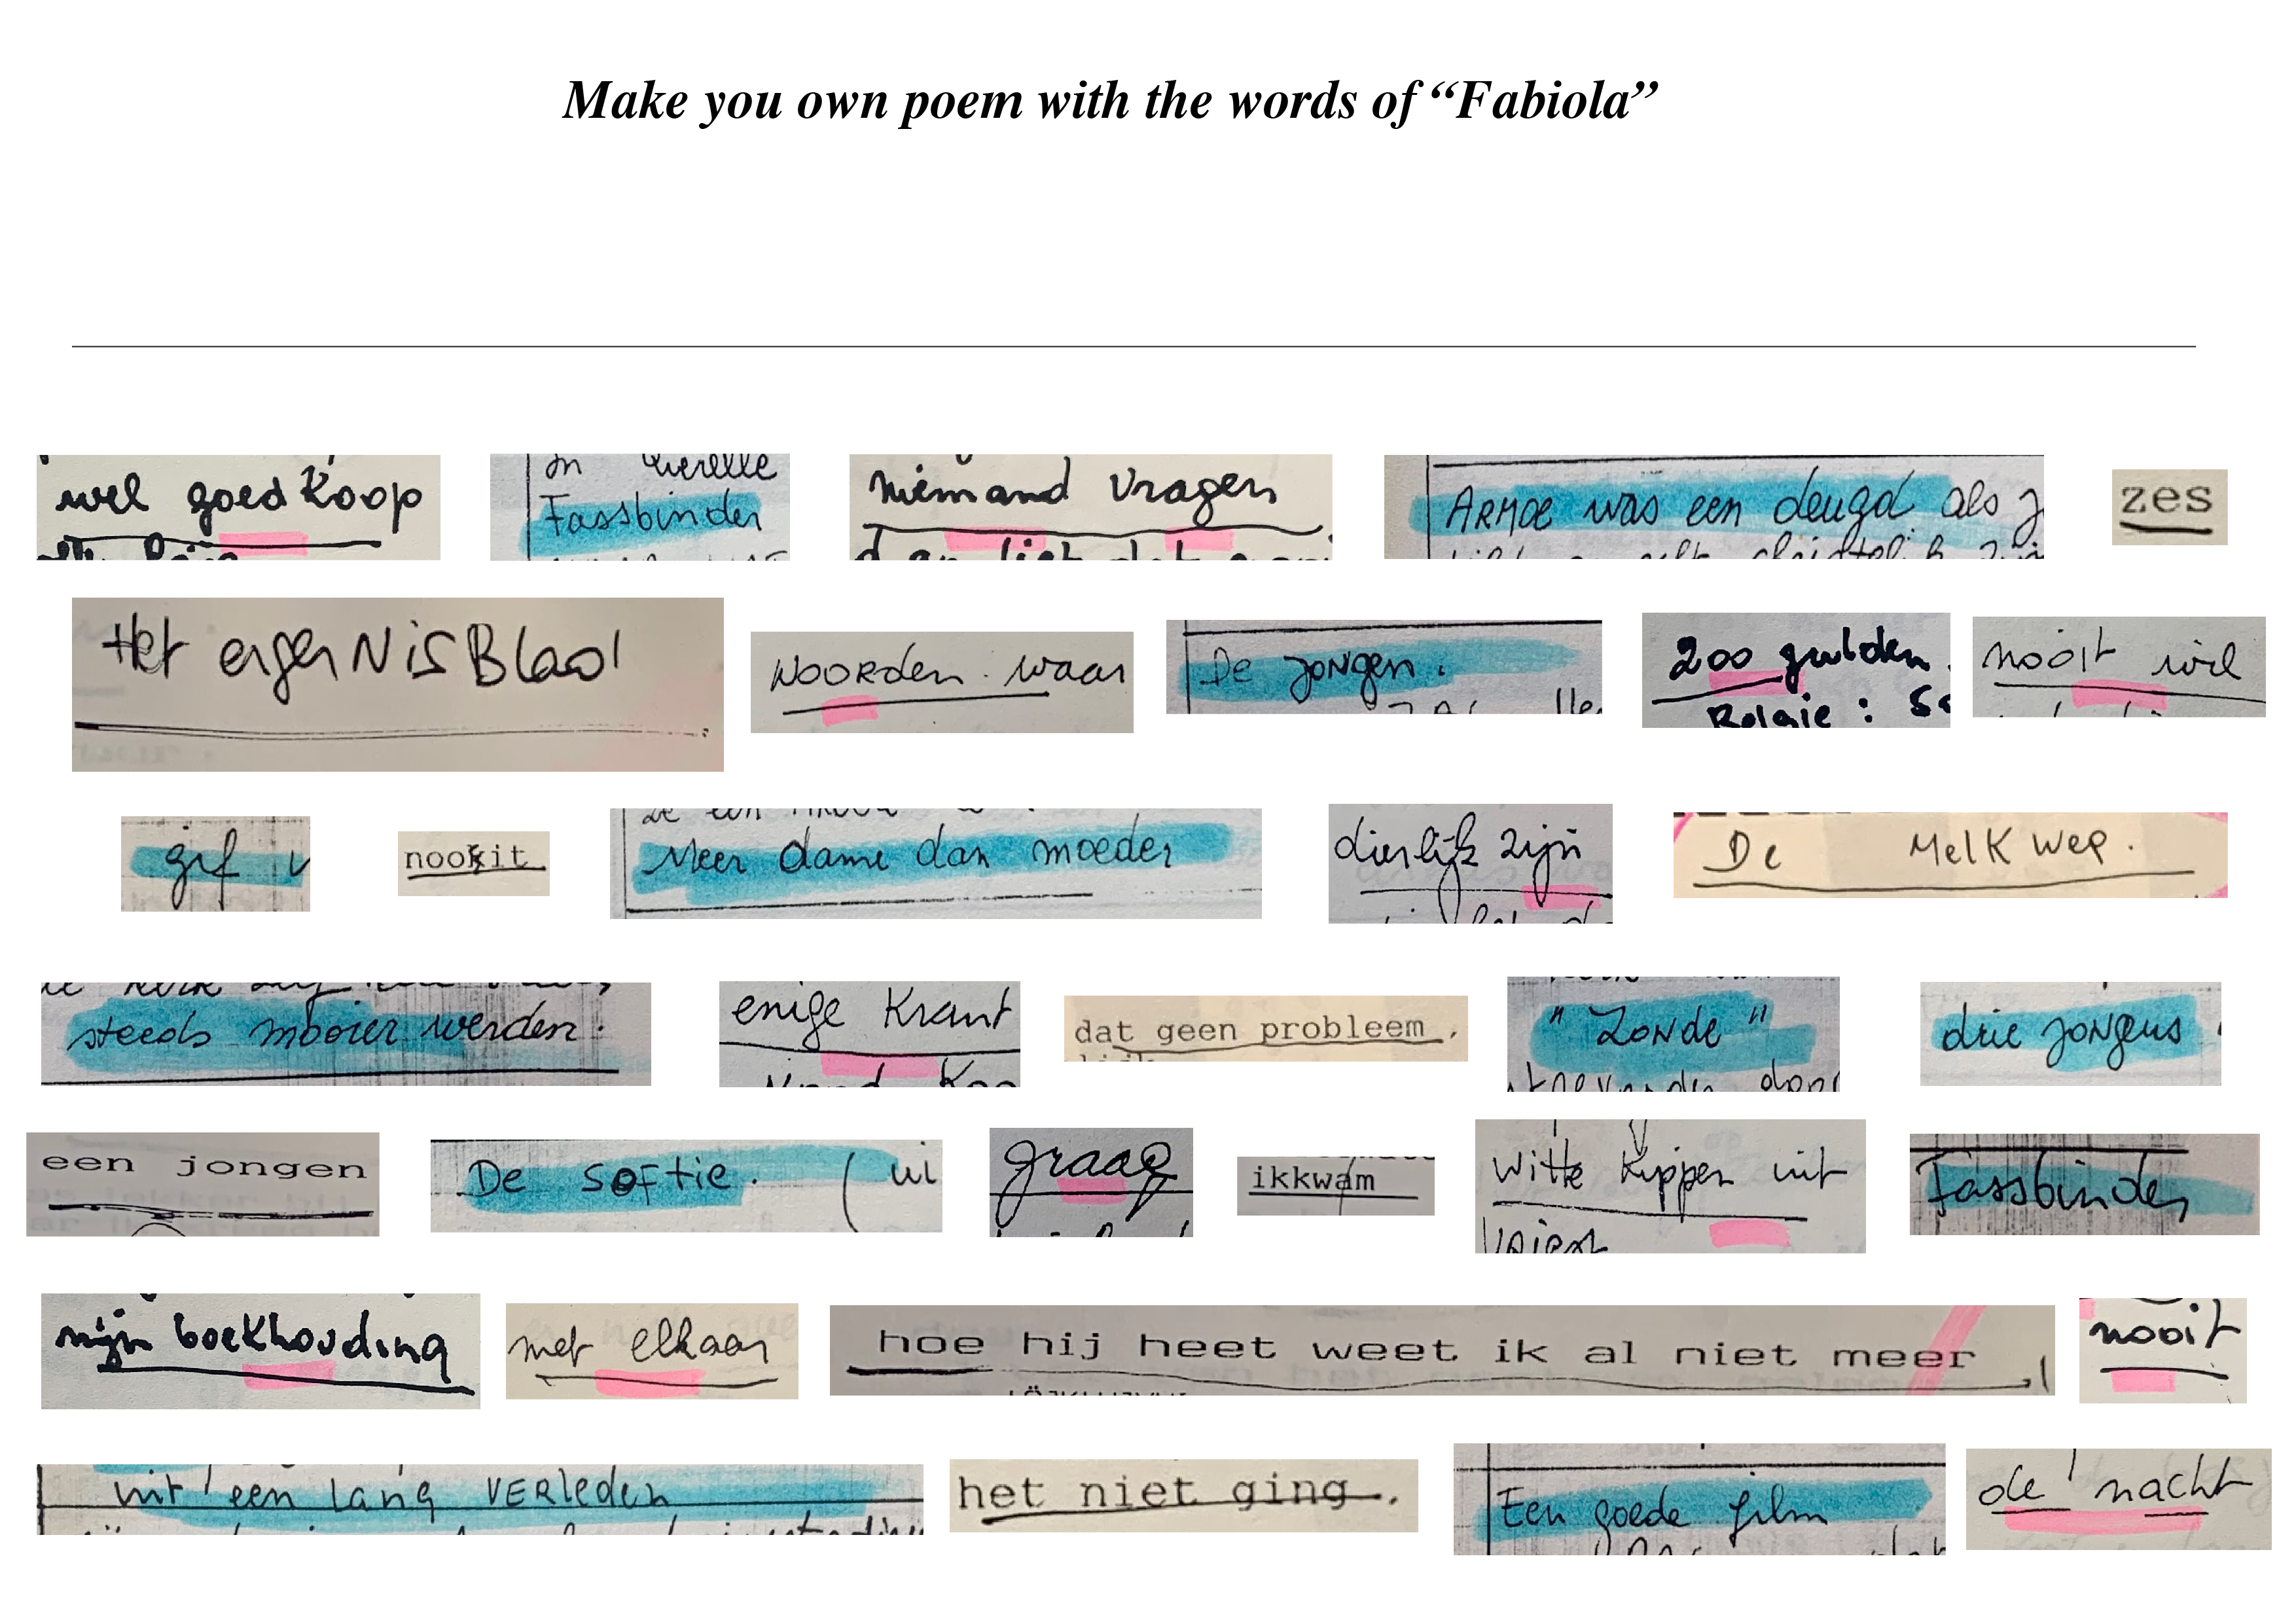 Make you own poem with the words of “Fabiola”
wel goedkoop
In Querelle
Fassbinder
niemand vragen
ARMOE was een deugd als
zes
Het ergerNisBlaol
woorden waar
De jongen.
200 gulden.
Relaie :
nooit wil
gif
nookit
Meer dame dan moeder
dierlijk zijn
De MelKweg.
steeds mooier werden.
enige Krant
dat geen probleem,
"ZoNde"
drie jongens
een jongen
De softie. (
graag
ikkwam
witte Kippen uit
Fassbinder
mijn boekhouding
met elkaar
hoe hij heet weet ik al niet meer
nooit
uit een lang VERleden
het niet ging.
Een goede film
de nacht